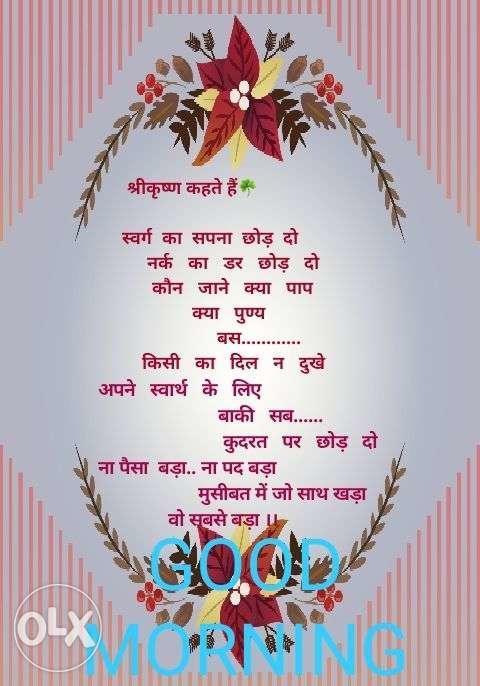 श्रीकृष्ण कहते हैं☘️
स्वर्ग का सपना छोड़ दो
नर्क का डर छोड़ दो
कौन जाने क्या पाप
क्या पुण्य
बस............
किसी का दिल न दुखे
अपने स्वार्थ के लिए
बाकी सब......
कुदरत पर छोड़ दो
ना पैसा बड़ा.. ना पद बड़ा
मुसीबत में जो साथ खड़ा
वो सबसे बड़ा ।।
GOOD
OLX
MORNING